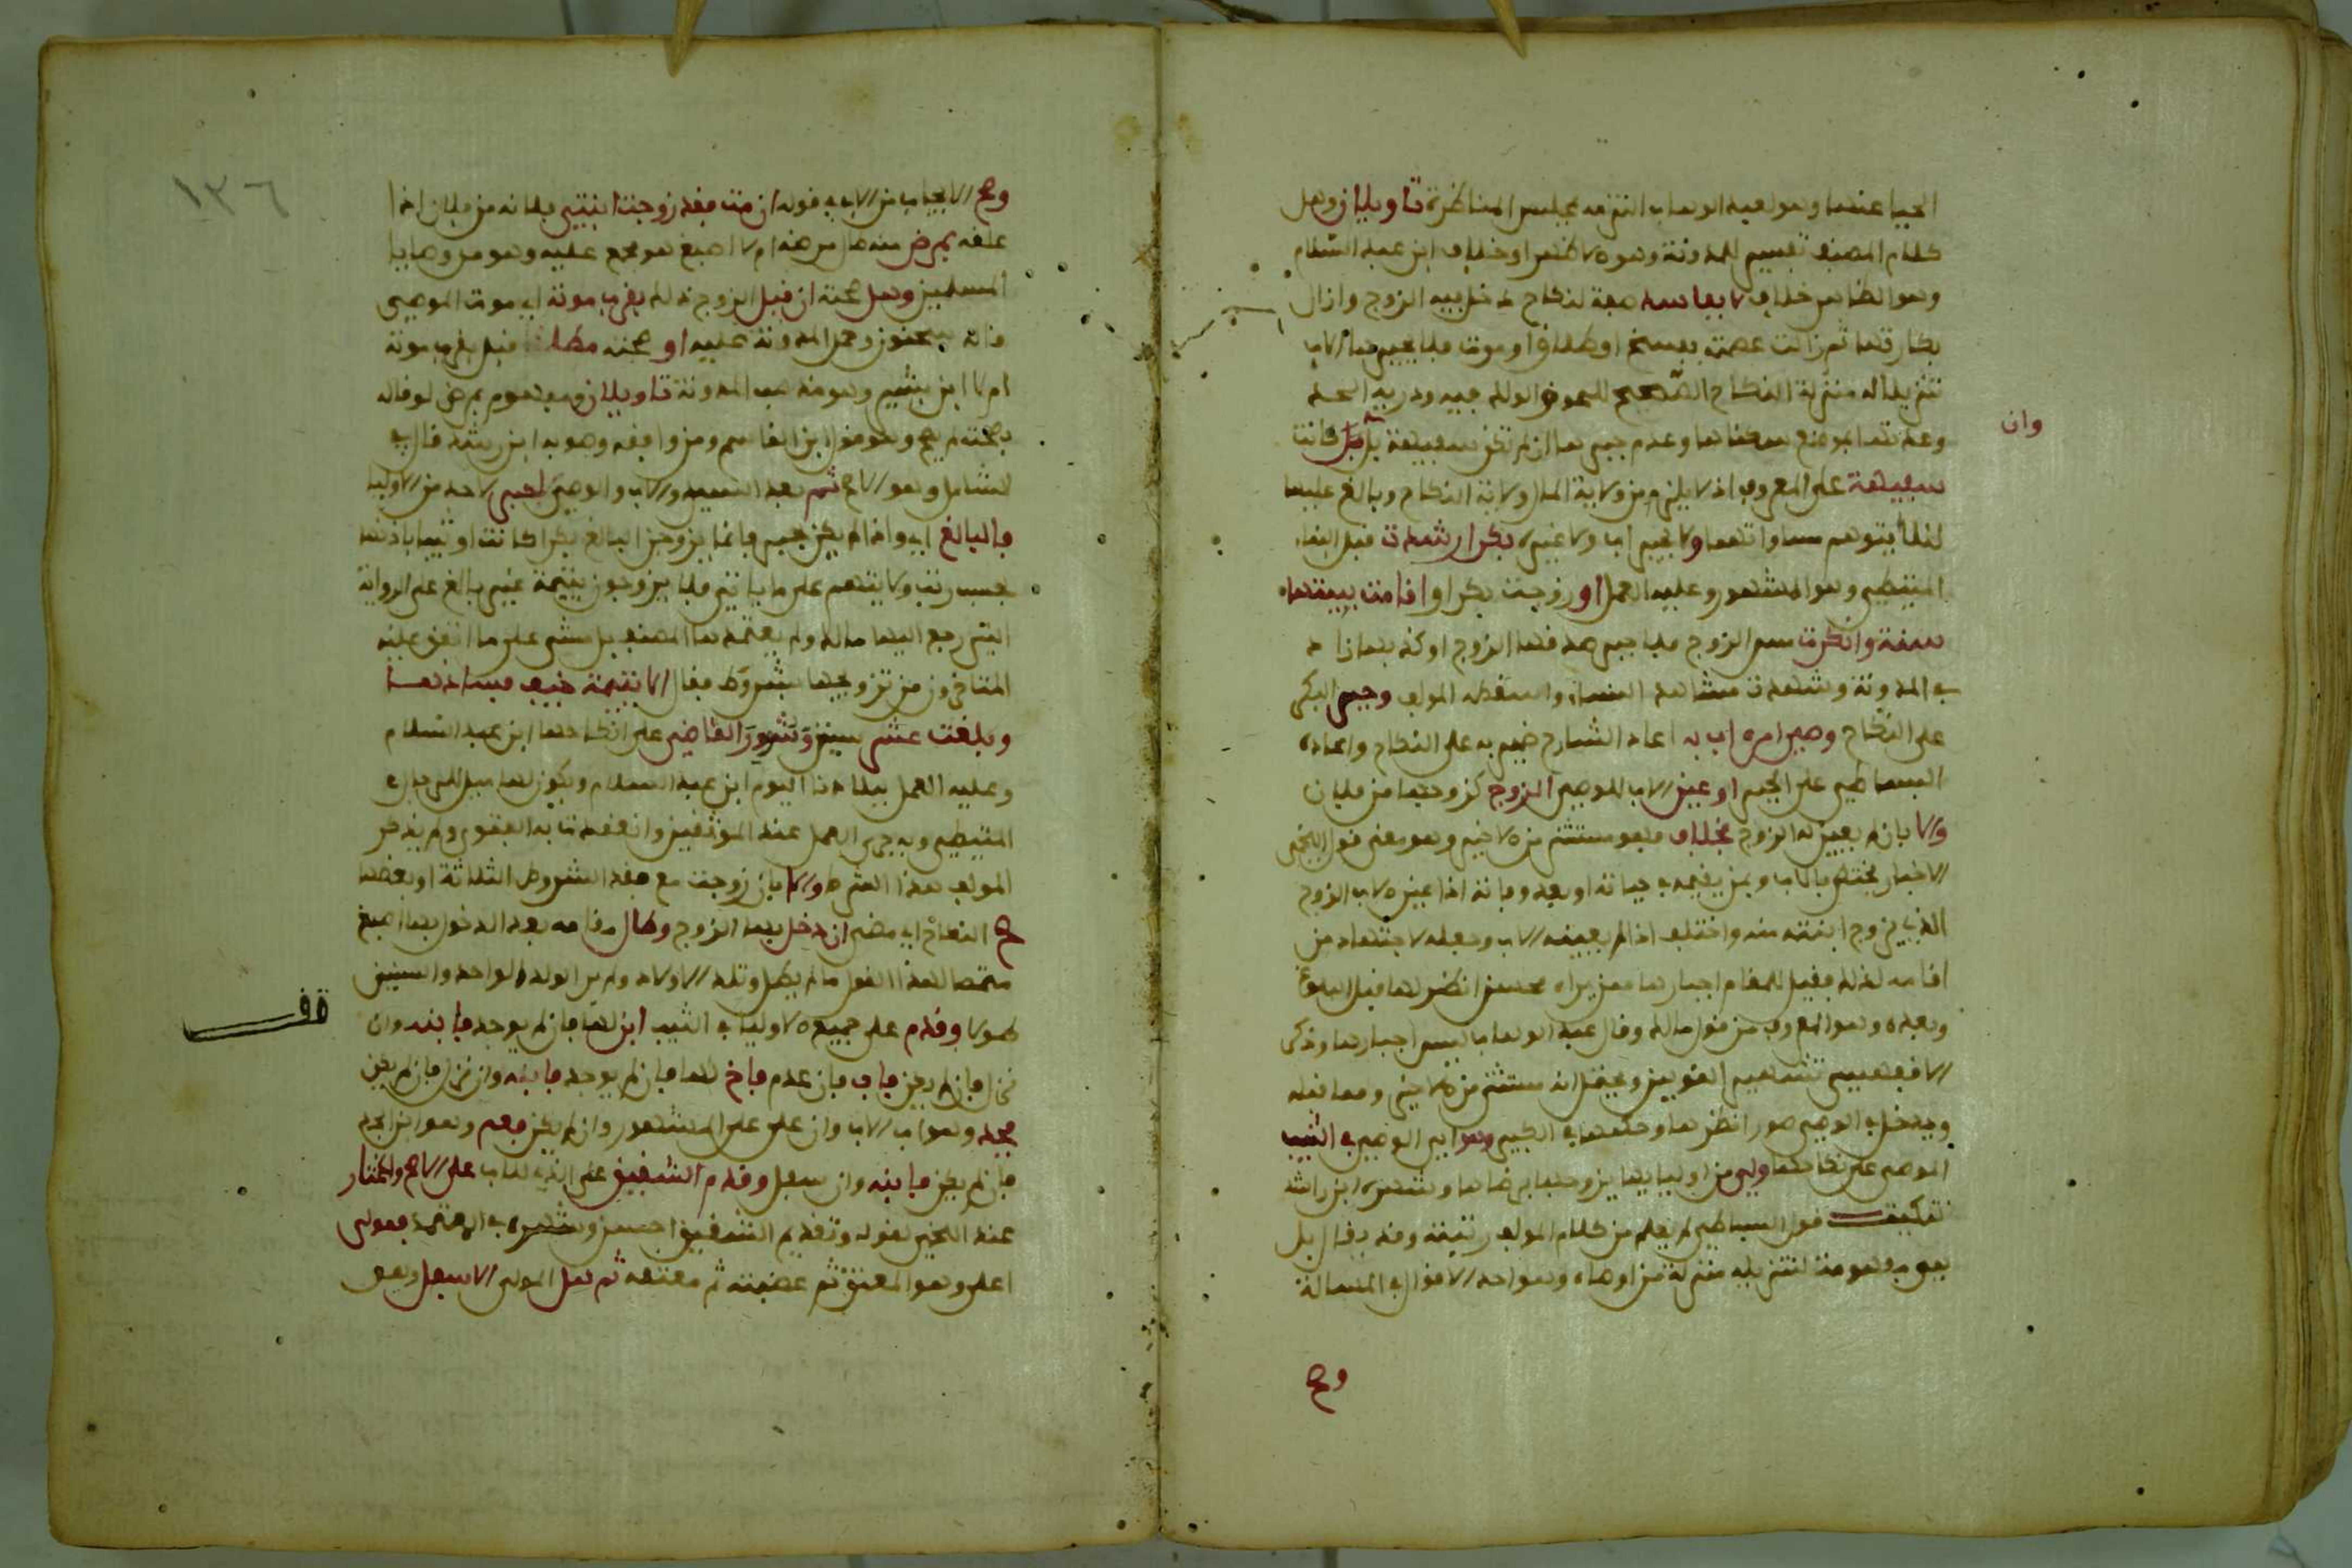 الحيا عنها وهو لعبد الوهاب التزمه بمجلس المناظرة تاويلان وهل
كلام المصنف تفسير للمدونة وهو لاظهر او خلاف ابن عبد السلام
وهو الظاهر خلاف لا بفاسد صفة لنكاح دخل فيه الزوج وازال
بكارتها ثم زالت عصمته بفسخ او طلاق او موت فلا يجبرها الاب
تنزيلا له منزلة النكاح الصحيح للحوق الولد فيه ودريه الحد
وعدتها بموضع سكناها وعدم جبرها ان لم تكن سفيهة بل كانت
وان
سفيهة على المعروف اذ لا يلزم من ولاية المال ولاية النكاح وبالغ عليها
لئلا يتوهم مساواتهما ولا يجبر اب ولا غيره بكرا رشدت قبل البناء
المتيطي وهو المشهور وعليه العمل او زوجت بكرا و اقامت ببيتها
سنة وانكرت مس الزوج فلا جبر صدقها الزوج او كذبها زاد
في المدونة وشهدت مشاهد النساء واسقطه المولف وجبر البكر
على النكاح وصي امره اب به اعاد الشارح ضمير به على النكاح واعاده
البساطي على الجبر او عين الاب للوصي الزوج كزوجها من فلان
والا بان لم يعين له الزوج فخلاف فهو مستثنى من لاخير وهو معنى قول اللخمي
الاجبار يختص بالاب وبمن يقيمه في حياته او بعد وفاته اذا عين لاب الزوج
الذي يزوج ابنته منه واختلف اذا لم يعينه الاب وجعله لاجتهاد من
اقامه لذلك فقيل للمقام اجبارها ممن يراه حسن انظر لها قبل البلوغ
وبعده وهو المعروف من قول مالك وقال عبد الوهاب ليس اجبارها وذكر
الاقفهسي تشهير القولين ويحتمل انه مستثنى من لاخير ومما قبله
ويدخل في الوصي صور انظرها وحكمها في الكبير وهو اي الوصي في الثيب
الموصى على نكاحها ولي من اوليايها يزوجها برضاها وشهره ابن راشد
تنكيت قول البساطي لم يعلم من كلام المولف رتبته وقد يقال بل
هو مفهومه لتنزيله منزلة من اوصاه وهو احد الاقوال في المسالة
وصح
١٣٦
وصح الايجاب من الاب في قوله ان مت فقد زوجت ابنتي فلانة من فلان اذا
علقه بمرض منه طال مرضه ام لا اصبغ هو مجمع عليه وهو من وصايا
المسلمين وهل صحته ان قبل الزوج ذلك بقرب موته اي موت الموصي
قاله سحنون وحمل المدونة عليه او صحته مطلقا قبل بقرب موته
ام لا ابن بشير وهو مذهب المدونة تاويلان ومفهوم بمرض لو قاله
بصحته لم يصح وهو قول ابن القاسم ومن وافقه وصوبه ابن رشد قال في
الشامل وهو الاصح ثم بعد السيد والاب والوصي لاجبر لاحد من الاوليا
فالبالغ اي واذا لم يكن جبر فانما يزوجن البالغ بكرا كانت او ثيبا باذنها
بحسب رتب ولايتهم على ما ياتي فلا يزوجون يتيمة غير بالغ على الرواية
التي رجع اليها مالك ولم يعتمدها المصنف بل مشى على ما اتفق عليه
المتاخرون من تزويجها بشروط فقال الا يتيمة خيف فسادها
وبلغت عشر سنين وشوور القاضي على انكاحها ابن عبد السلام
وعليه العمل ببلادنا اليوم ابن عبد السلام ويكون لها ميل للرجال
المتيطي وبه جرى العمل عند الموثقين وانعقدت به الفتوى ولم يذكر
المولف هذا الشرط والا بان زوجت مع فقد الشروط الثلاثة او بعضها
صح النكاح اي مضى ان دخل بها الزوج وطال مقامه بعد الدخول بها اصبغ
متمما لهذا القول ما لم يطل وتلد الاولاد ولم ير الولد الواحد والسنين
قف
طولا وقدم على جميع لاوليا في الثيب ابن لها فان لم يوجد فابنه وان
نزل فان لم يكن فاب فان عدم فاخ لها فان لم يوجد فابنه وان نزل فان لم يكن
فجد وهو اب الاب وان على على المشهور وان لم يكن فعم وهو ابن الجد
فان لم يكن فابنه وان سفل وقدم الشقيق على الذي للاب على الاصح والمختار
عند اللخمي لقوله وتقديم الشقيق احسن وشهره في المعتمد فمولى
اعلى وهو المعتق ثم عصبته ثم معتقه ثم هل المولى الاسفل وهو